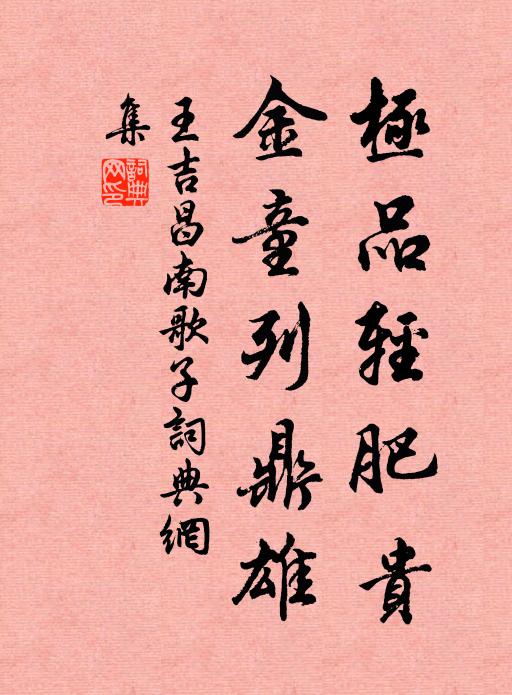 極品輕肥貴
金童列鼎雄
王吉昌南歌子詞典網
集
詞典網印